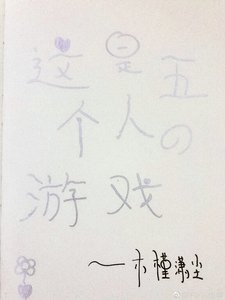 这是五
个人の
游戏
~木槿潇尘